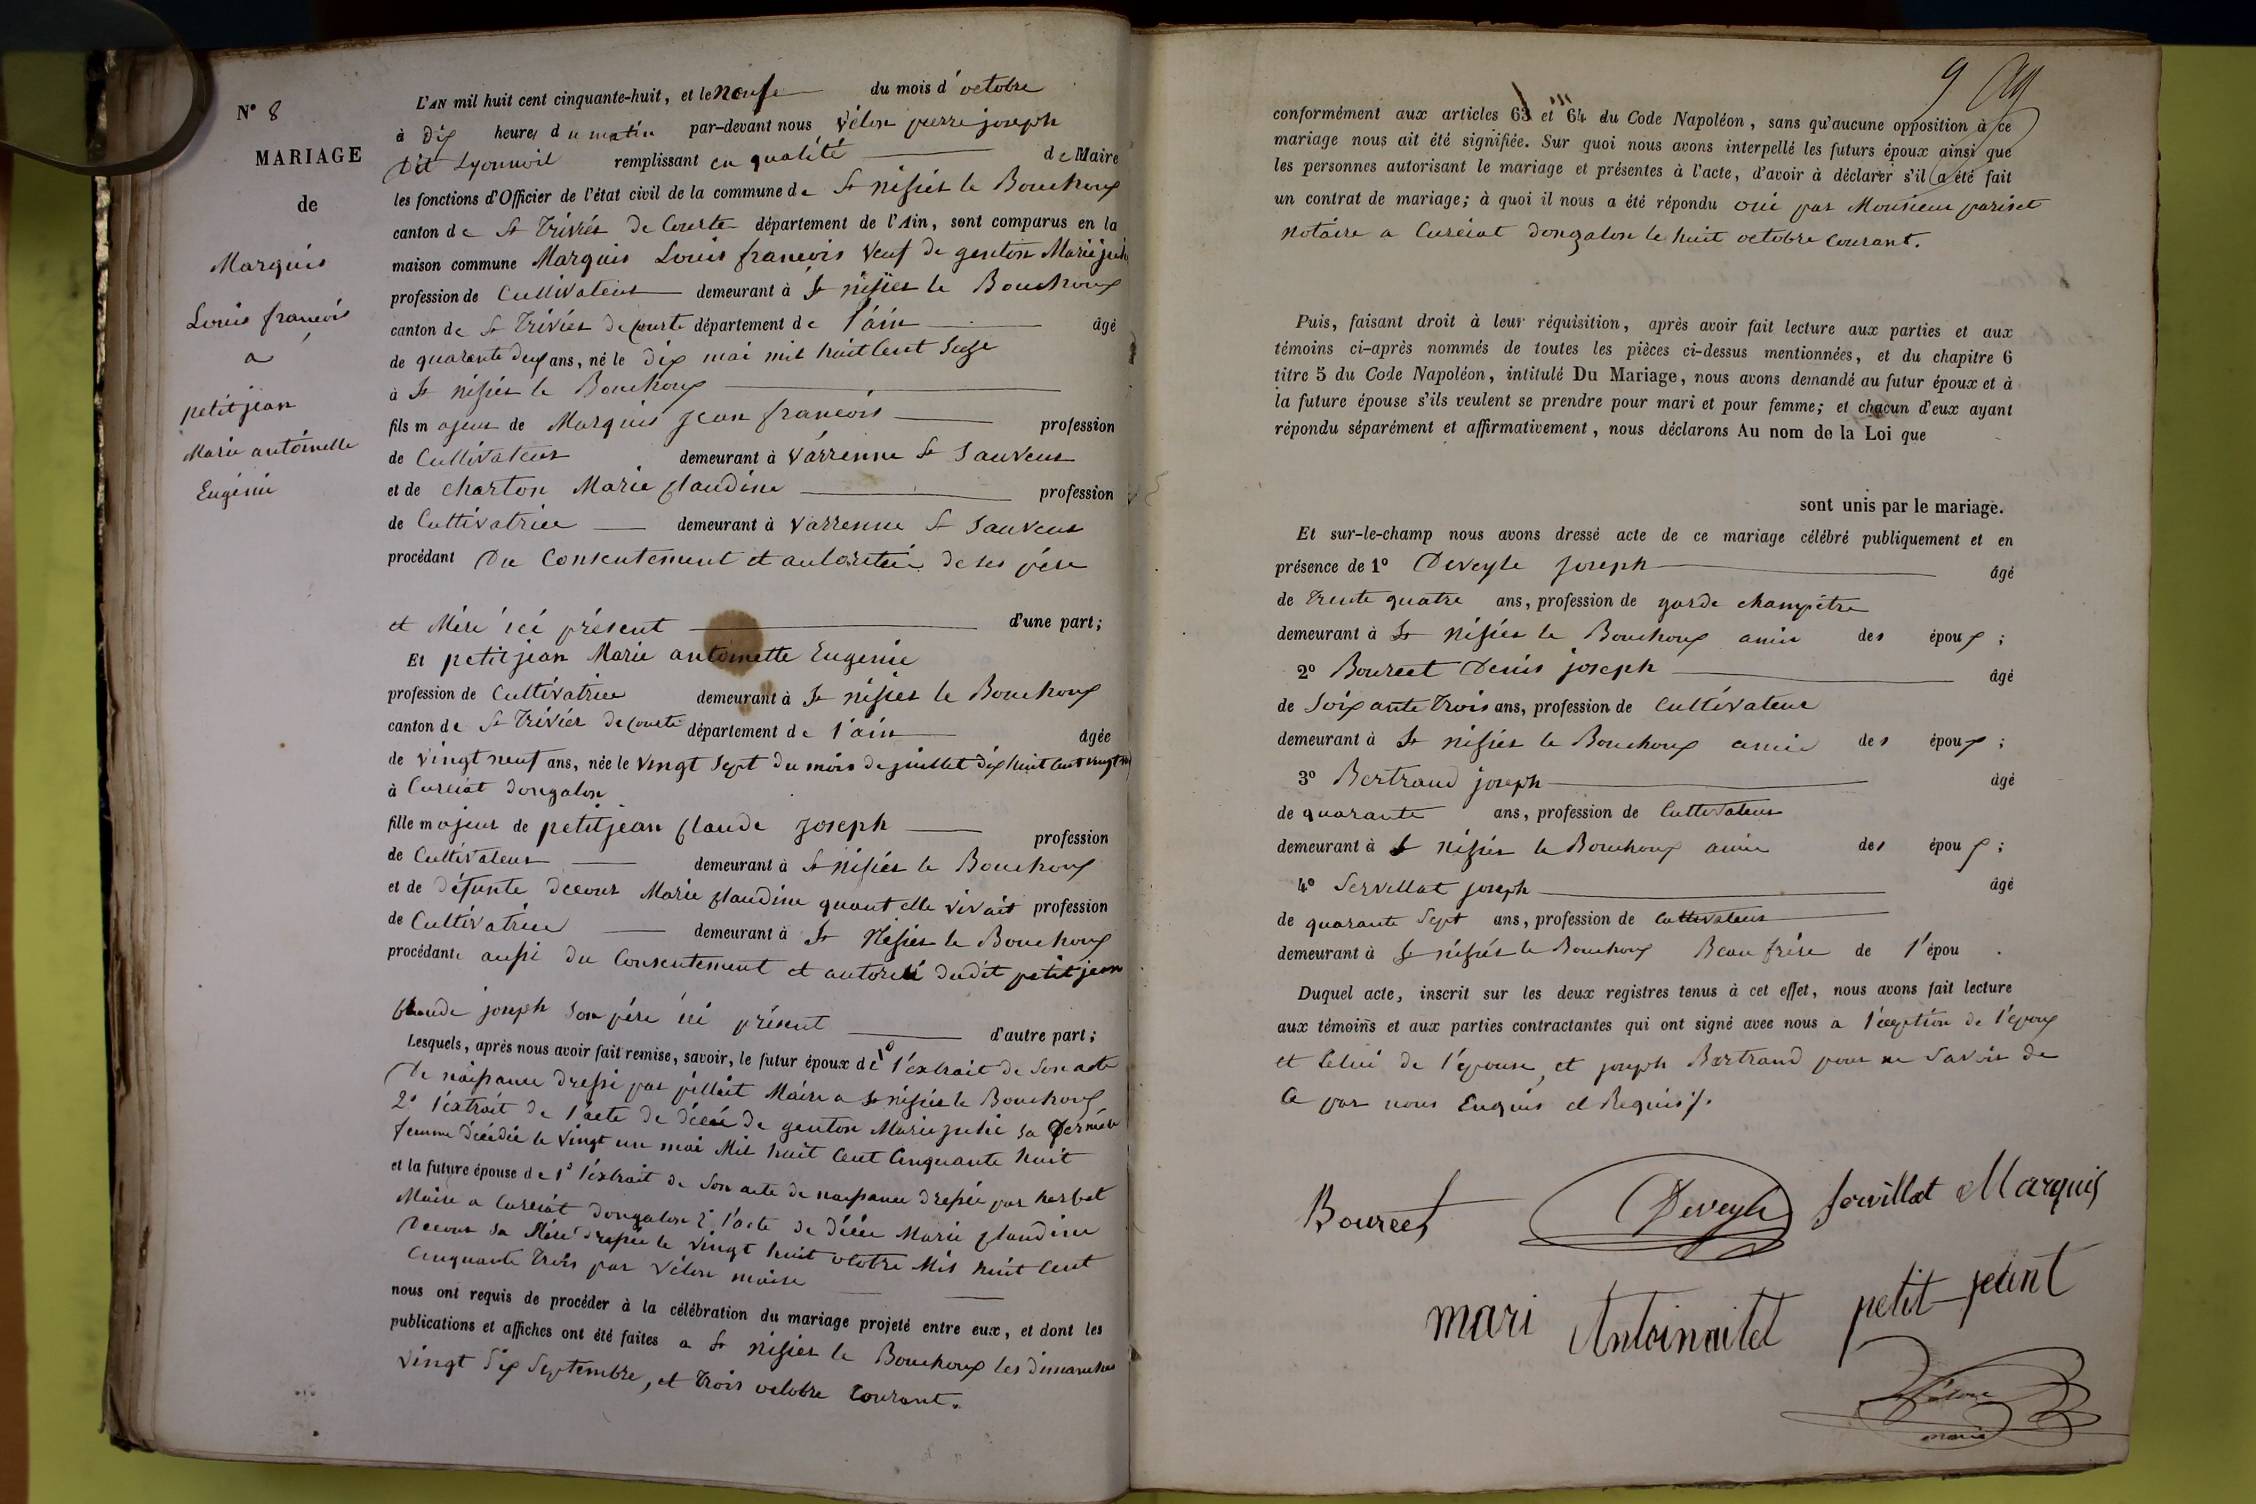 N° 8
MARIAGE
de
Marquis
Louis francois
a
petitjean
Marie antoinette
Eugénie
L'AN mil huit cent cinquante-huit, et le neufe du mois d'octobre
à Dix heures du matin par-devant nous Vélon pierre joseph
Dit Lyonnoit remplissant en qualité de Maire
les fonctions d'Officier de l'état civil de la commune de St nisier le Bouchoux
canton de St Trivier de Courte département de l'Ain, sont comparus en la
maison commune Marquis Louis francois Veuf de genton Marie julie
profession de Cultivateur demeurant à St nisier le Bouchoux
canton de St Trivier de Courte département de l'ain âgé
de quarante deux ans, né le dix mai mil huit Cent Seize
à St nisier le Bouchoux
fils majeur de Marquis Jean francois profession
de Cultivateur demeurant à Varrenne St Sauveur
et de charton Marie flaudine profession
de Cultivatrice demeurant à Varrenne St Sauveur
procédant Du Consentement et autoritée de ses pére
et Mére ici présent d'une part;
Et petitjean Marie antoinette Eugenie
profession de Cultivatrice demeurant à St nisier le Bouchoux
canton de St Trivier de Courte département de l'ain âgée
de vingt neuf ans, née le vingt Sept du mois de juillet dix huit Cent vingt
à Curciat dongalon
fille majeur de petitjean flaude joseph profession
de Cultivateur demeurant à St nisier le Bouchoux
et de défunte decour Marie flaudine quant elle vivait profession
de Cultivatrice demeurant à St Nisier le Bouchoux
procédante aussi du Consentement et autorité dudit petitjean
flaude joseph son pére ici présent d'autre part;
Lesquels, après nous avoir fait remise, savoir, le futur époux de 1° l'extrait de Son acte
De naissance dressé par pillait Maire a St nisier le Bouchoux
2° l'extrait de l'acte de décée de genton Marie julie sa Derniére
femme décédée le vingt un mai Mil huit Cent Cinquante huit
et la future épouse de 1° l'extrait de Son acte de naissance dressée par herbet
Maire a Curciat dongalon 2° l'acte de décée Marie flaudine
Decour sa Mére dressée le vingt huit octobre Mil huit Cent
Cinquante trois par Vélon maire
nous ont requis de procéder à la célébration du mariage projeté entre eux, et dont les
publications et affiches ont été faites a St nisier le Bouchoux les dimanches
vingt Six Septembre, et trois octobre Courant.
9
conformément aux articles 63 et 64 du Code Napoléon, sans qu'aucune opposition à ce
mariage nous ait été signifiée. Sur quoi nous avons interpellé les futurs époux ainsi que
les personnes autorisant le mariage et présentes à l'acte, d'avoir à déclarer s'il a été fait
un contrat de mariage; à quoi il nous a été répondu oui par Monsieur pariset
Notaire a Curciat dongalon le huit octobre Courant.
Puis, faisant droit à leur réquisition, après avoir fait lecture aux parties et aux
témoins ci-après nommés de toutes les pièces ci-dessus mentionnées, et du chapitre 6
titre 5 du Code Napoléon, intitulé Du Mariage, nous avons demandé au futur époux et à
la future épouse s'ils veulent se prendre pour mari et pour femme; et chacun d'eux ayant
répondu séparément et affirmativement, nous déclarons Au nom de la Loi que
sont unis par le mariage.
Et sur-le-champ nous avons dressé acte de ce mariage célébré publiquement et en
présence de 1° Deveyle Joseph âgé
de trente quatre ans, profession de garde champêtre
demeurant à St Nisier le Bouchoux amie des époux;
2° Bourcet Denis joseph âgé
de Soixante Trois ans, profession de Cultivateur
demeurant à St nisier le Bouchoux amie des époux;
3° Bertrand joseph âgé
de quarante ans, profession de Cultivateur
demeurant à St nisier le Bouchoux amie des époux;
4° Servillat joseph âgé
de quarante Sept ans, profession de Cultivateur
demeurant à St nisier le Bouchoux Beau frére de l'épou .
Duquel acte, inscrit sur les deux registres tenus à cet effet, nous avons fait lecture
aux témoins et aux parties contractantes qui ont signé avec nous a l'éxeption de l'époux
et Celui de l'épouse, et joseph Bertrand pour ne Savoir de
Ce par nous Enquis et Requis.
Bourcet Deveyle Servillat Marquis
mari Antoinaitet petit-jeant
Vélon
maire